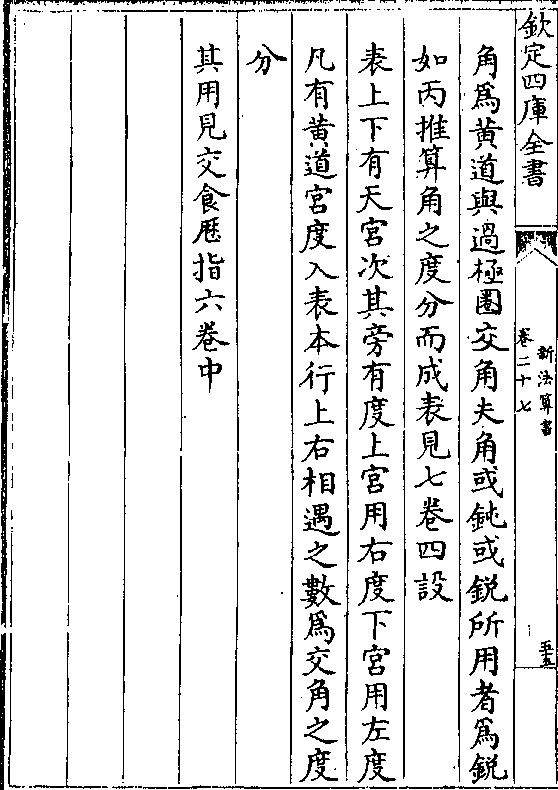 欽定四庫全書
新法算書
卷二十七
五五
角爲黄道與過極圏交角夫角或鈍或鋭所用者爲鋭
如丙推算角之度分而成表見七卷四設
表上下有天宮次其旁有度上宮用右度下宮用左度
凡有黄道宮度入表本行上右相遇之數爲交角之度
分
其用見交食歴指六卷中